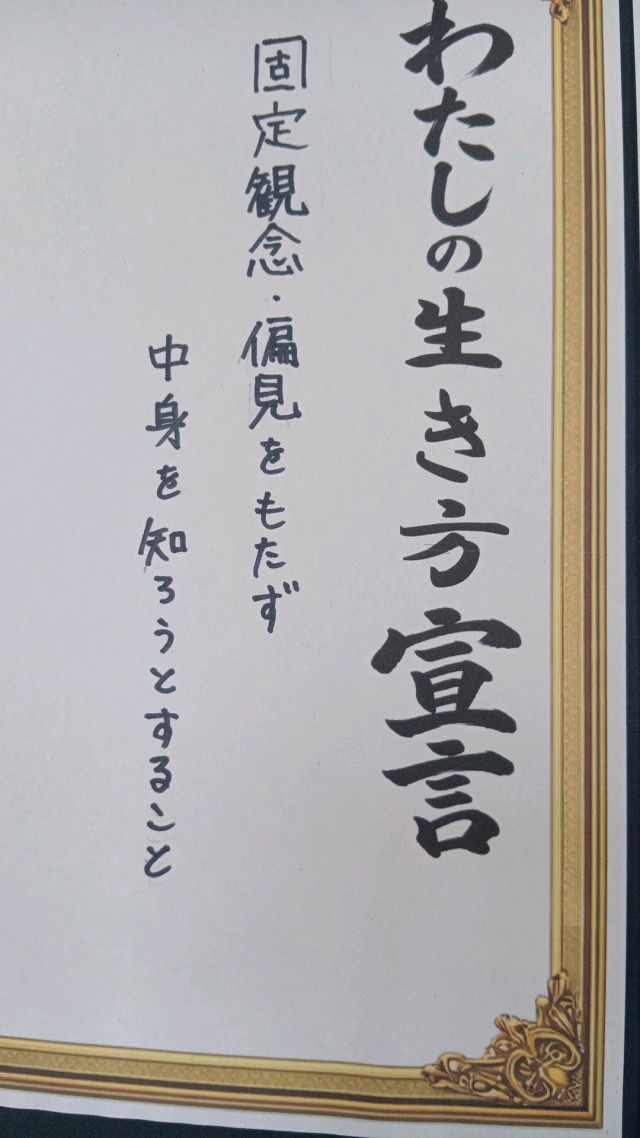 わたしの生き方宣言
固定観念・偏見をもたず
中身を知ろうとすること